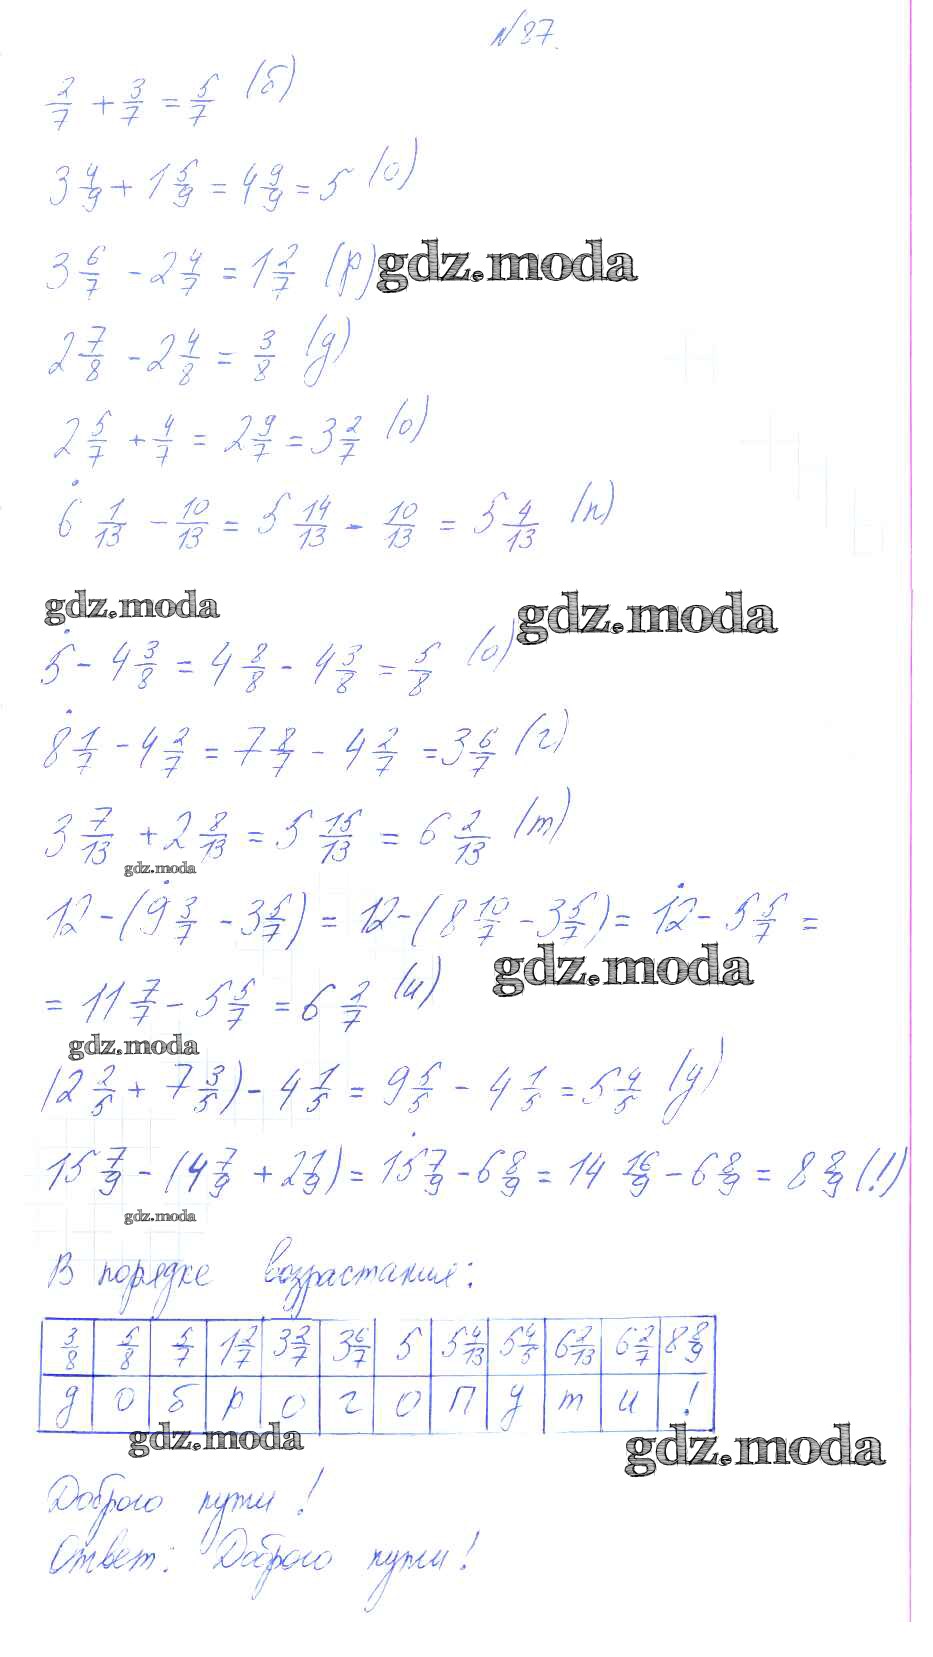 №87.
2/7 + 3/7 = 5/7 (б)
3 4/9 + 1 5/9 = 4 9/9 = 5 (о)
3 6/7 - 2 4/7 = 1 2/7 (р) gdz.moda
2 7/8 - 2 4/8 = 3/8 (д)
2 5/7 + 4/7 = 2 9/7 = 3 2/7 (о)
6 1/13 - 10/13 = 5 14/13 - 10/13 = 5 4/13 (п)
gdz.moda gdz.moda
5 - 4 3/8 = 4 8/8 - 4 3/8 = 5/8 (о)
8 1/7 - 4 2/7 = 7 8/7 - 4 2/7 = 3 6/7 (г)
3 7/13 + 2 8/13 = 5 15/13 = 6 2/13 (т)
gdz.moda
12 - (9 3/7 - 3 5/7) = 12 - (8 10/7 - 3 5/7) = 12 - 5 5/7 =
gdz.moda
= 11 7/7 - 5 5/7 = 6 2/7 (и)
gdz.moda
(2 2/5 + 7 3/5) - 4 1/5 = 9 5/5 - 4 1/5 = 5 4/5 (у)
15 7/9 - (4 7/9 + 2 1/9) = 15 7/9 - 6 8/9 = 14 16/9 - 6 8/9 = 8 8/9 (!)
gdz.moda
В порядке возрастания:
3/8 5/8 5/7 1 2/7 3 2/7 3 6/7 5 5 4/13 5 4/5 6 2/13 6 2/7 8 8/9
д о б р о г о п у т и !
gdz.moda gdz.moda
Доброго пути!
Ответ: Доброго пути!